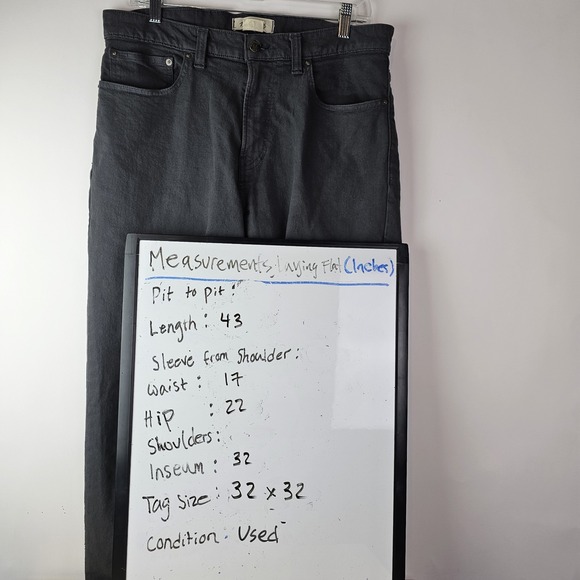 Measurements Laying Flat (Inches)
Pit to pit:
Length: 43
Sleeve from Shoulder:
Waist: 17
Hip : 22
Shoulders:
Inseum: 32
Tag Size: 32 x 32
Condition: Used